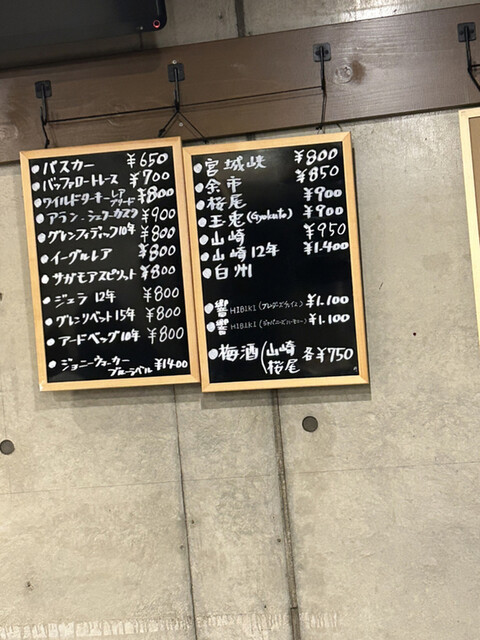 ●バスカー ¥650
●バッファロートレース ¥700
●ワイルドターキーレアブリード ¥800
●アラン ¥900
●グレンフィディック10年 ¥800
●イーグルレア ¥800
●サガモアスピリット ¥800
●ジュラ 12年 ¥800
●グレンリベット15年 ¥800
●アードベッグ10年 ¥800
●ジョニーウォーカー
ブルーラベル ¥1400
●宮城峡 ¥800
●余市 ¥850
●桜尾 ¥900
●玉兎(Gyokuto) ¥900
●山崎 ¥950
●山崎12年 ¥1.400
●白州
●響 HIBIKI (ブレンダーズチョイス) ¥1.100
●響 HIBIKI (ジャパニーズハーモニー) ¥1.100
●梅酒(山崎 各¥750
桜尾